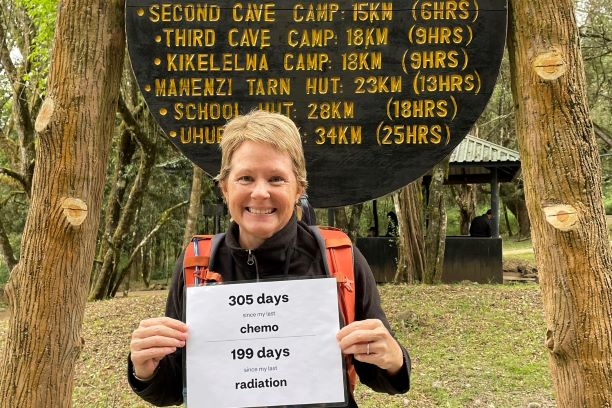 • SECOND CAVE CAMP: 15KM (6HRS)
• THIRD CAVE CAMP: 18KM (9HRS)
• KIKELELWA CAMP: 18KM (9HRS)
• MAWENZI TARN HUT: 23KM (13HRS)
• SCHOOL HUT: 28KM (18HRS)
34KM (25HRS)
305 days
since my last
chemo
199 days
since my last
radiation